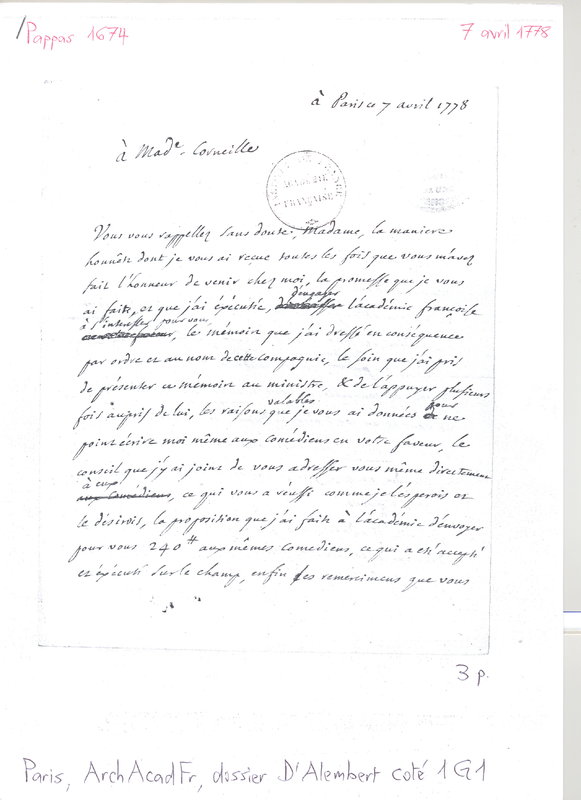 /Pappas 1674
7 avril 1778
à Paris ce 7 avril 1778
à Made. Corneille
ACADÉMIE
FRANÇAISE
Vous vous rappellez sans doute, Madame, la maniere
honnête dont je vous ai recue toutes les fois que vous m'avez
fait l'honneur de venir chez moi, la promesse que je vous
d'engager
ai faite, et que j'ai éxécutée, l'académie françoise
à s'intéresser pour vous
, le mémoire que j'ai dressé en conséquence
par ordre et au nom de cette compagnie, le soin que j'ai pris
de présenter ce mémoire au ministre, & de l'appuyer plusieurs
valables
pour
fois auprès de lui, les raisons que je vous ai données ne
point écrire moi même aux comédiens en votre faveur, le
conseil que j'y ai joint de vous adresser vous même directement
à eux
aux comédiens, ce qui vous a réussi comme je l'espérois et
le désirois, la proposition que j'ai faite à l'académie d'envoyer
pour vous 240# aux mêmes comediens, ce qui a été accepté
et éxécuté sur le champ, enfin les remercimens que vous
3 p.
Paris, ArchAcadFr, dossier D'Alembert coté 1G1